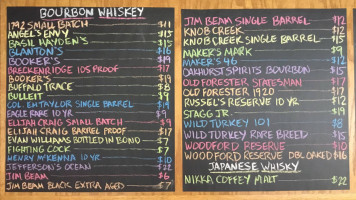 BOURBON WHISKEY
1792 SMALL BATCH $11
ANGEL'S ENVY $13
BASIL HAYDEN'S $15
BLANTON'S $16
BOOKER'S $19
BRECKENRIDGE 105 PROOF $17
BOOKER'S $19
BUFFALO TRACE $8
BULLEIT $9
COL. EH TAYLOR SINGLE BARREL $19
EAGLE RARE 10 YR $9
ELIJAH CRAIG SMALL BATCH $9
ELIJAH CRAIG BARREL PROOF $17
EVAN WILLIAMS BOTTLED IN BOND $7
FIGHTING COCK $7
HENRY MCKENNA 10 YR $10
JEFFERSON'S OCEAN $22
JIM BEAM $6
JIM BEAM BLACK EXTRA AGED $7
JIM BEAM SINGLE BARREL $12
KNOB CREEK $12
KNOB CREEK SINGLE BARREL $15
MAKER'S MARK $9
MAKER'S 46 $12
OAKHURST SPIRITS BOURBON $15
OLD FORESTER STATESMAN $17
OLD FORESTER 1920 $17
RUSSEL'S RESERVE 10 YR $12
STAGG JR. $19
WILD TURKEY 101 $8
WILD TURKEY RARE BREED $15
WOODFORD RESERVE $10
WOODFORD RESERVE DBL OAKED $16
JAPANESE WHISKY
NIKKA COFFEY MALT $22